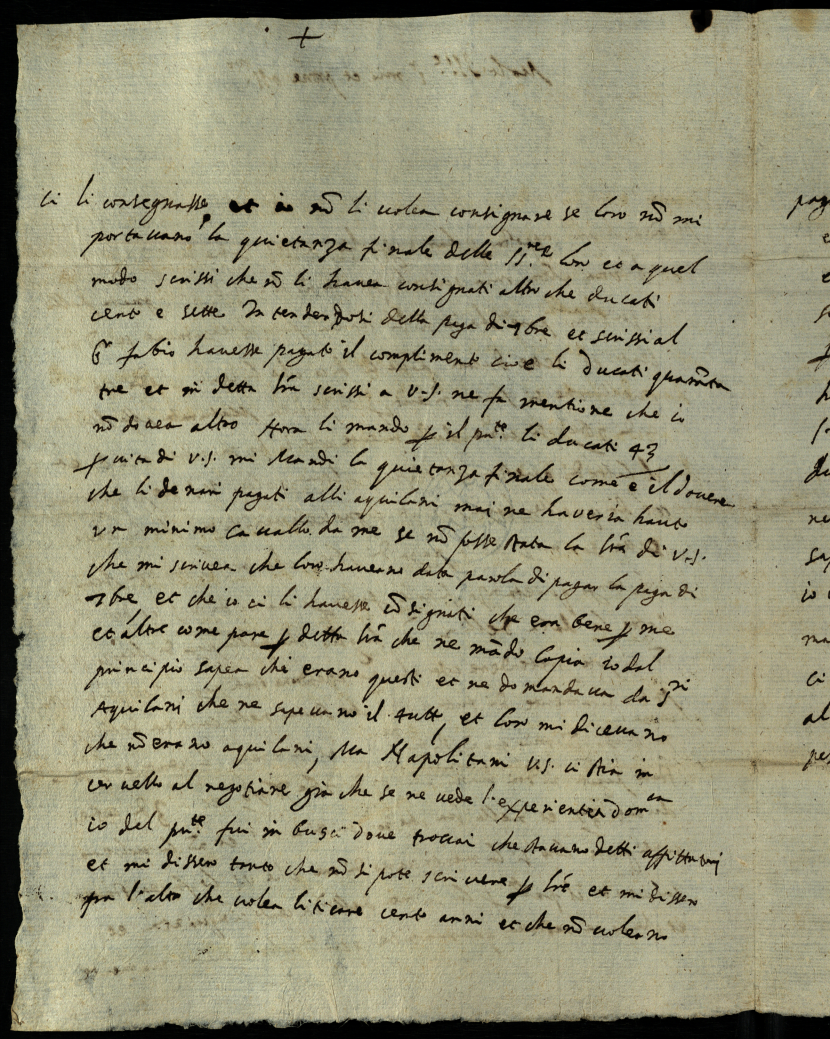 +
ci li consegnasse, et io nõ li volea consignare se loro nõ mi
portavano la quietanza finale delle SS.rie loro et a quel
modo scrissi che nõ li havea consignati altro che ducati
cento e sette Intendendosi della paga di 7bre et scrissi al
Sr fabio havesse pagato il complimento cioe li ducati quarãta
tre et in detta lrã scrissi a V.S. ne fa mentione che io
nõ dovea altro Hora li mando ꝑ il pñte li ducati 43
ꝑ vita di V.S. mi Mandi la quietanza finale come è il dovere
che li denari pagati alli aquilani mai ne haveria hauto
un minimo cavallo da me se nõ fosse stata la lrã di V.S.
che mi scrivea che loro haveano data parola di pagar la paga di
7bre, et che io ci li havesse cõsignati che era bene ꝑ me
et altre come pare ꝑ detta lrã che ne mãdo Copia io dal
principio sapea chi erano questi et ne domandava da ri
Aquilani che ne sapevano il tutt, et loro mi dicevano
che nõ erano aquilani, Ma Napolitani V.S. ci stia in
cervello al negotiare gia che se ne vede l'experientia dom.ca
io del pñte fui in busci dove trovai che stavano detti affittatori
et mi dissero tanto che nõ si pote scrivere ꝑ lrẽ et mi dissero
fra l'altro che volea liticare cento anni et che nõ voleano
pag
e
e
s
ꝑ
h
du
ne
sap
io
ma
ci
al
per